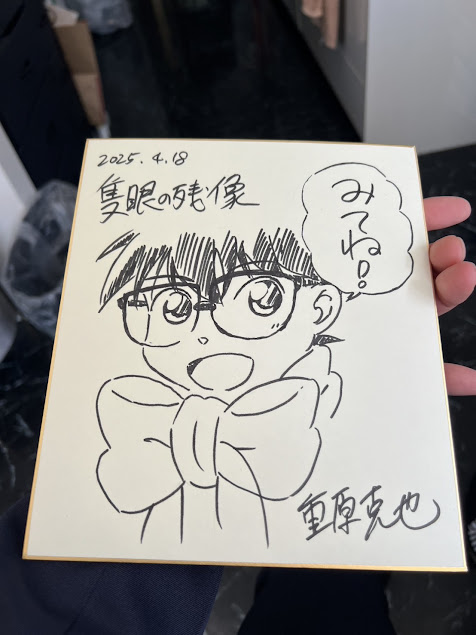 2025.4.18
隻眼の残像
みてね!
重原克也